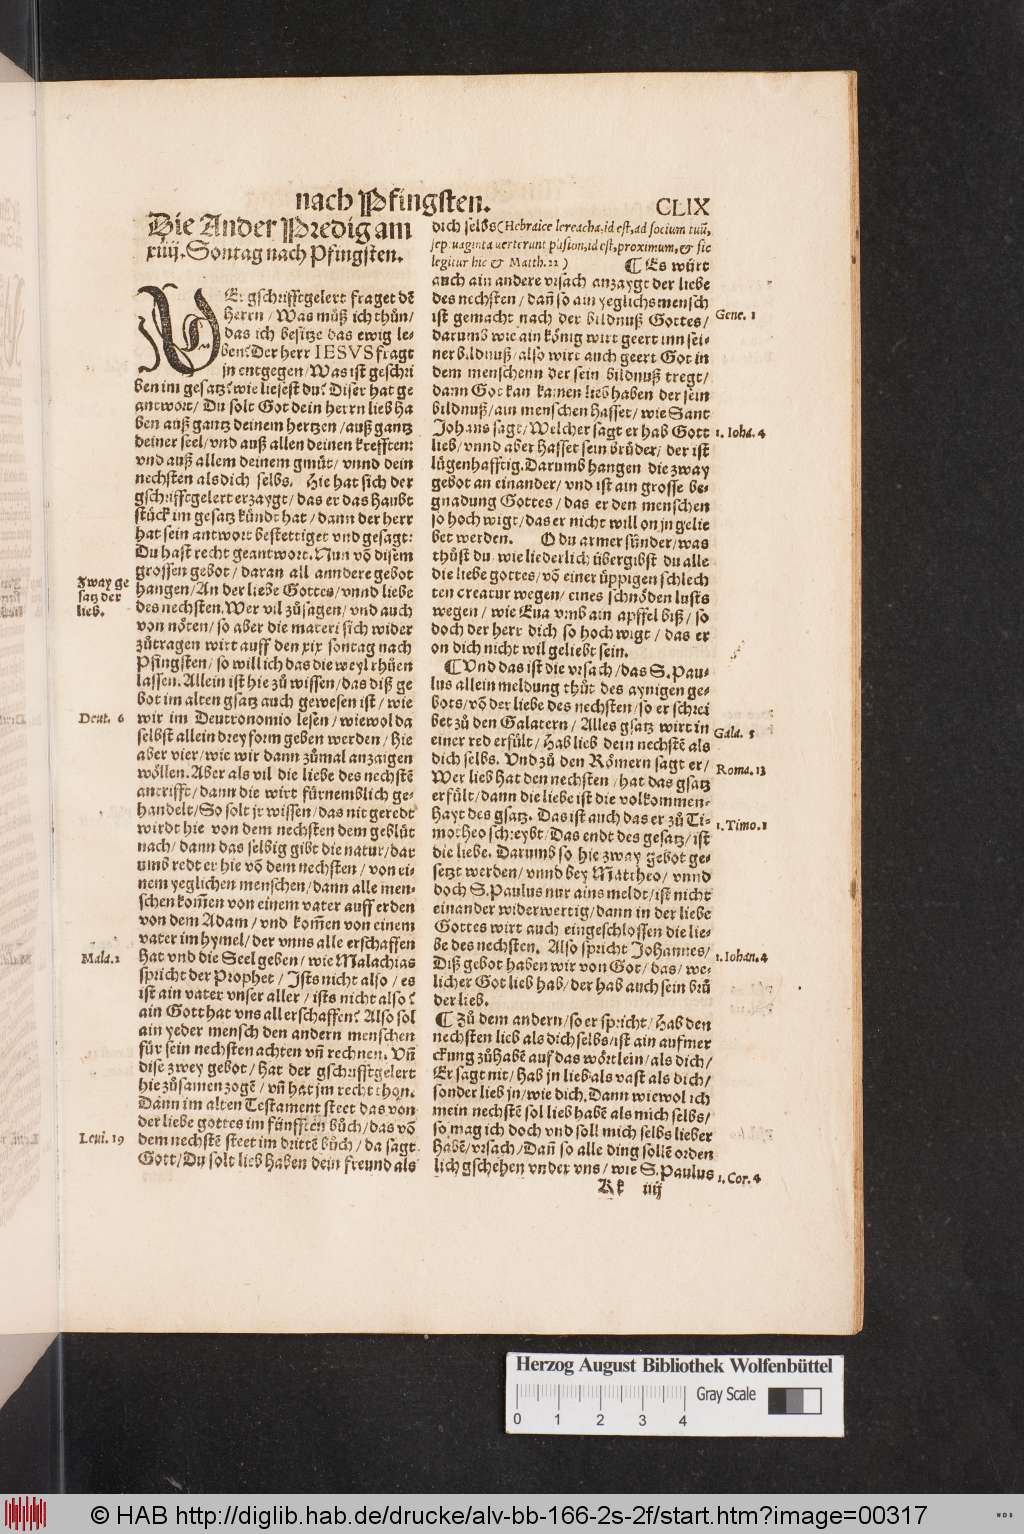 nach Pfingsten.
CLIX
Die Ander Predig am
xiiij. Sontag nach Pfingsten.
DEr gschrifftgelert fraget dē
Herrn / Was můß ich thůn /
das ich besitze das ewig le-
ben? Der herr IESVS fragt
jn entgegen / Was ist geschri
ben im gesatz? wie liesest du? Diser hat ge
antwort / Du solt Got dein herrn lieb ha
ben auß gantz deinem hertzen / auß gantz
deiner seel / vnd auß allen deinen krefften:
vnd auß allem deinem gmüt / vnnd dein
nechsten als dich selbs. Hie hat sich der
gschrifftgelert erzaygt / das er das Haubt
stück im gesatz kündt hat / dann der herr
hat sein antwort bestettiget vnd gesagt:
Du hast recht geantwort. Nun vō disem
grossen gebot / daran all anndere gebot
Zway ge
satz der
lieb.
hangen / An der liebe Gottes / vnnd liebe
des nechsten. Wer vil zůsagen / vnd auch
von nöten / so aber die materi sich wider
zůtragen wirt auff den xix sontag nach
Pfingsten / so will ich das die weyl rhüen
lassen. Allein ist hie zů wissen / das diß ge
bot im alten gsatz auch gewesen ist / wie
Deut. 6
wir im Deutronomio lesen / wiewol da
selbst allein drey form geben werden / hie
aber vier / wie wir dann zůmal anzaigen
wöllen. Aber als vil die liebe des nechstē
antrifft / dann die wirt fürnemblich ge-
handelt / So solt jr wissen / das nit geredt
wirdt hie von dem nechsten dem geblüt
nach / dann das selbig gibt die natur / dar
umb redt er hie vō dem nechsten / von ei-
nem yeglichen menschen / dann alle men-
schen kom̄en von einem vater auff erden
von dem Adam / vnd kom̄en von einem
vater im hymel / der vnns alle erschaffen
Mala. 2
hat vnd die Seel geben / wie Malachias
spricht der Prophet / Ists nicht also / es
ist ain vater vnser aller / ists nicht also?
ain Gott hat vns all erschaffen? Also sol
ain yeder mensch den andern menschen
für sein nechsten achten vn̄ rechnen. Vn̄
dise zwey gebot / hat der gschrifftgelert
hie zůsamen zogē / vn̄ hat jm recht thon.
Dann im alten Testament steet das von
der liebe gottes im fünfften bůch / das vō
Leui. 19
dem nechstē steet im drittē bůch / da sagt
Gott / Du solt lieb haben dein freund als
dich selbs (Hebraice lereacha, id est, ad socium tuū,
sep. uaginta uerterunt plusion, id est, proximum, & sic
legitur hic & Matth. 22) ¶ Es würt
auch ain andere vrsach anzaygt der liebe
des nechsten / dan̄ so ain yeglichs mensch
ist gemacht nach der bildnuß Gottes /
Gene. 1
darumb wie ain könig wirt geert inn sei-
ner bildnuß / also wirt auch geert Got in
dem menschenn der sein bildnuß tregt /
dann Got kan kainen lieb haben der sein
bildnuß / ain menschen hasset / wie Sant
Johans sagt / Welcher sagt er hab Gott
1. Ioha. 4
lieb / vnnd aber hasset sein brüder / der ist
lügenhafftig. Darumb hangen die zway
gebot an einander / vnd ist ain grosse be-
gnadung Gottes / das er den menschen
so hoch wigt / das er nicht will on jn gelie
bet werden. O du armer sünder / was
thůst du wie liederlich übergibst du alle
die liebe gottes / vō einer üppigen schlech
ten creatur wegen / eines schnöden lusts
wegen / wie Eua vmb ain apffel biß / so
doch der herr dich so hoch wigt / das er
on dich nicht wil geliebt sein.
¶ Vnd das ist die vrsach / das S. Pau-
lus allein meldung thůt des aynigen ge-
bots / vō der liebe des nechsten / so er schrei
bet zů den Galatern / Alles gsatz wirt in
Gala. 5
einer red erfült / Hab lieb dein nechstē als
dich selbs. Vnd zů den Römern sagt er /
Roma. 13
Wer lieb hat den nechsten / hat das gsatz
erfült / dann die liebe ist die volkommen-
hayt des gsatz. Das ist auch das er zů Ti-
1. Timo. 1
motheo schreybt / Das endt des gesatz / ist
die liebe. Darumb so hie zway gebot ge-
setzt werden / vnnd bey Mattheo / vnnd
doch S. Paulus nur ains meldt / ist nicht
einander widerwertig / dann in der liebe
Gottes wirt auch eingeschlossen die lie-
be des nechsten. Also spricht Johannes /
1. Iohan. 4
Diß gebot haben wir von Got / das / we-
licher Got lieb hab / der hab auch sein brů
der lieb.
¶ Zů dem andern / so er spricht / Hab den
nechsten lieb als dich selbs / ist ain aufmer
ckung zůhabē auf das wörtlein / als dich /
Er sagt nit / Hab jn lieb als vast als dich /
sonder lieb jn / wie dich. Dann wiewol ich
mein nechstē sol lieb habē als mich selbs /
so mag ich doch vnd soll mich selbs lieber
habē / vrsach / Dan̄ so alle ding sollē orden
lich gschehen vnder vns / wie S. Paulus
1. Cor. 4
Kk iiij
Herzog August Bibliothek Wolfenbüttel
0 1 2 3 4
Gray Scale
© HAB http://diglib.hab.de/drucke/alv-bb-166-2s-2f/start.htm?image=00317